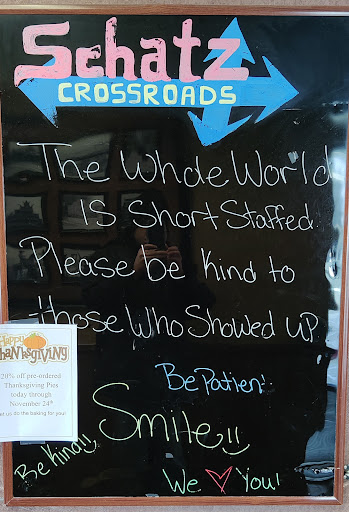 Schatz
CROSSROADS
The Whole World
IS Short Staffed.
Please be Kind to
those Who Showed up
Happy
THANKSGIVING
20% off pre-ordered
Thanksgiving Pies
today through
November 24th
Let us do the baking for you!
Be Patient!
Smile!!
Be Kind!!
We ♡ You!